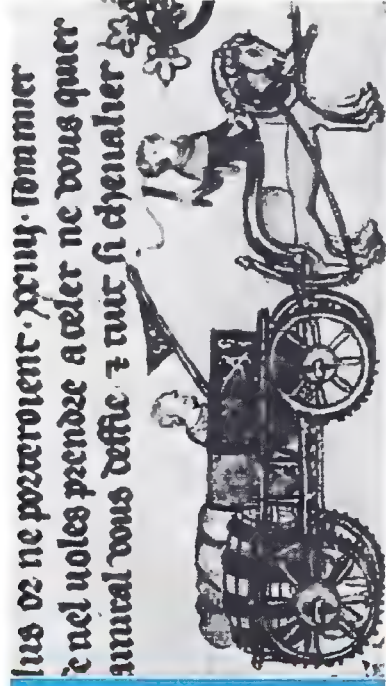 lus oz ne porteroient · xxiiij · sommier
e nel uoles prendre a celer ne vous quier
amiral vous deffie · ⁊ tuit si cheualier